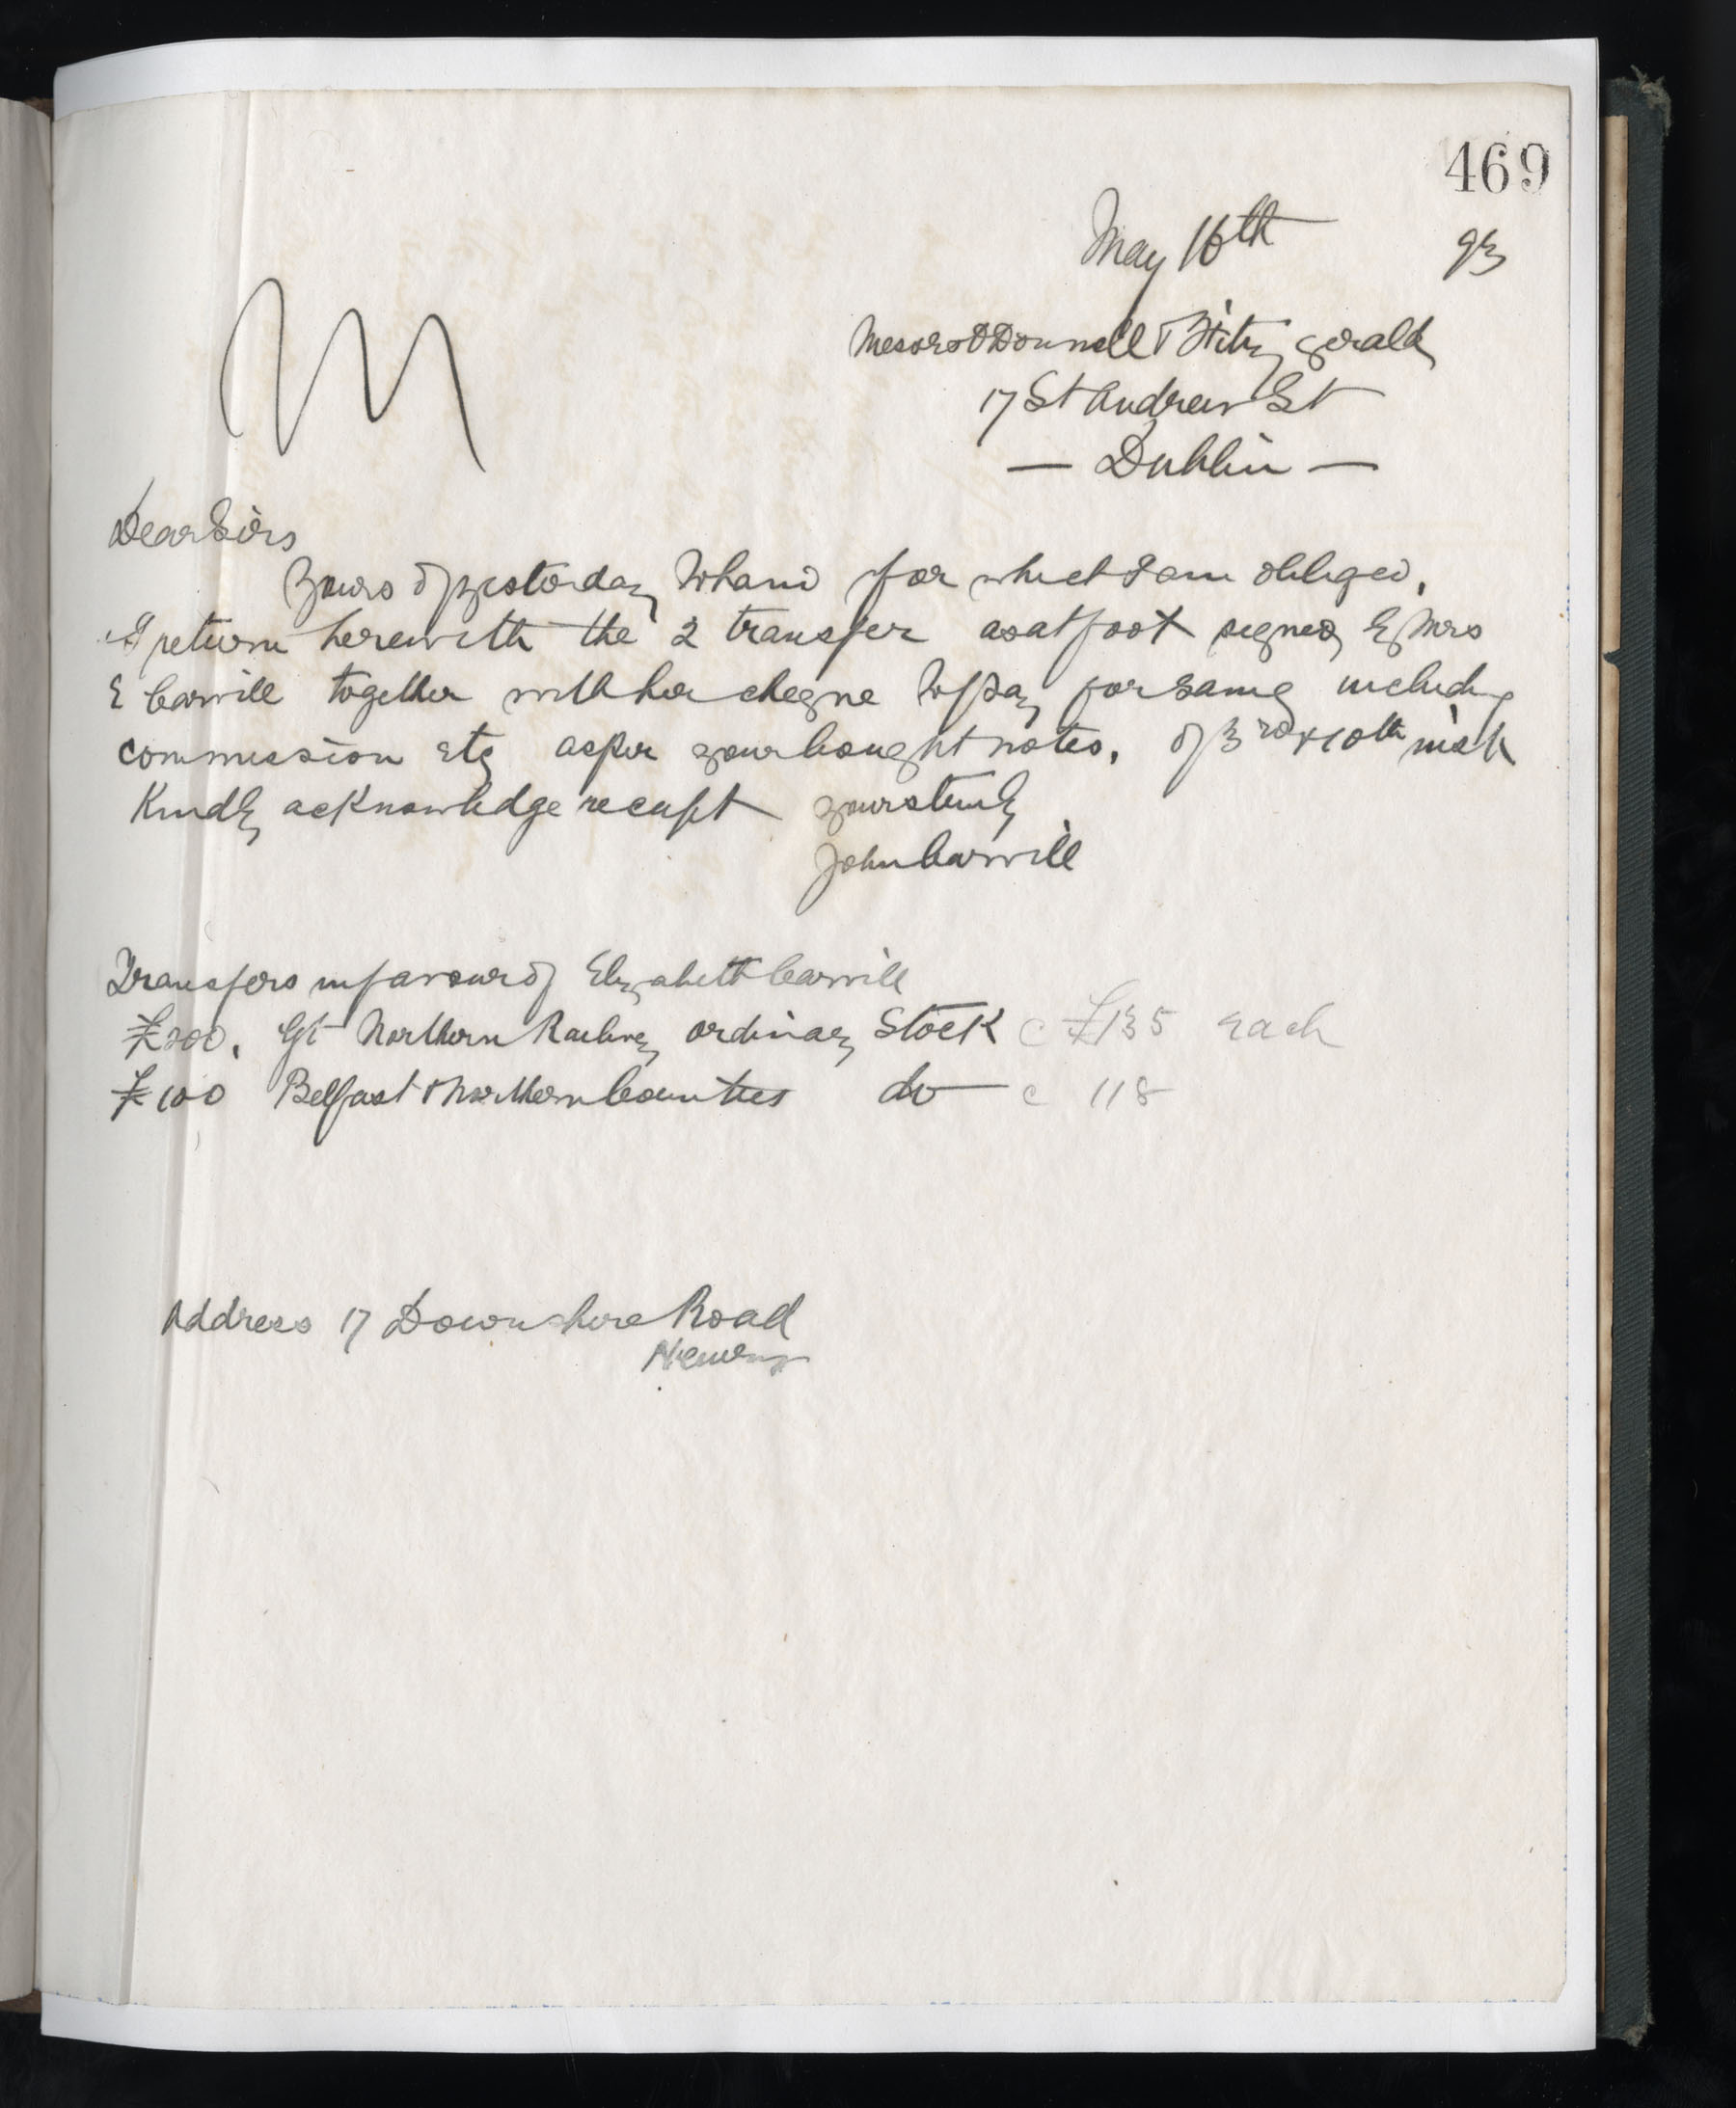 469
May 16th 93
Messrs O'Donnell & Fitzgerald
17 St Andrew St
— Dublin —
M
Dear Sirs
Yours of yesterday to hand for which I am obliged.
I return herewith the 2 transfer as at foot signed by Mrs
E Carvill together with her cheque to pay for same including
commission etc as per your bought notes. of 3rd & 10th inst
Kindly acknowledge receipt yours truly
John Carvill
Transfers in favour of Elizabeth Carvill
£200. Gt Northern Railway ordinary Stock @ £135 each
£100 Belfast & Northern Counties do @ 118
Address 17 Downshire Road
Newry